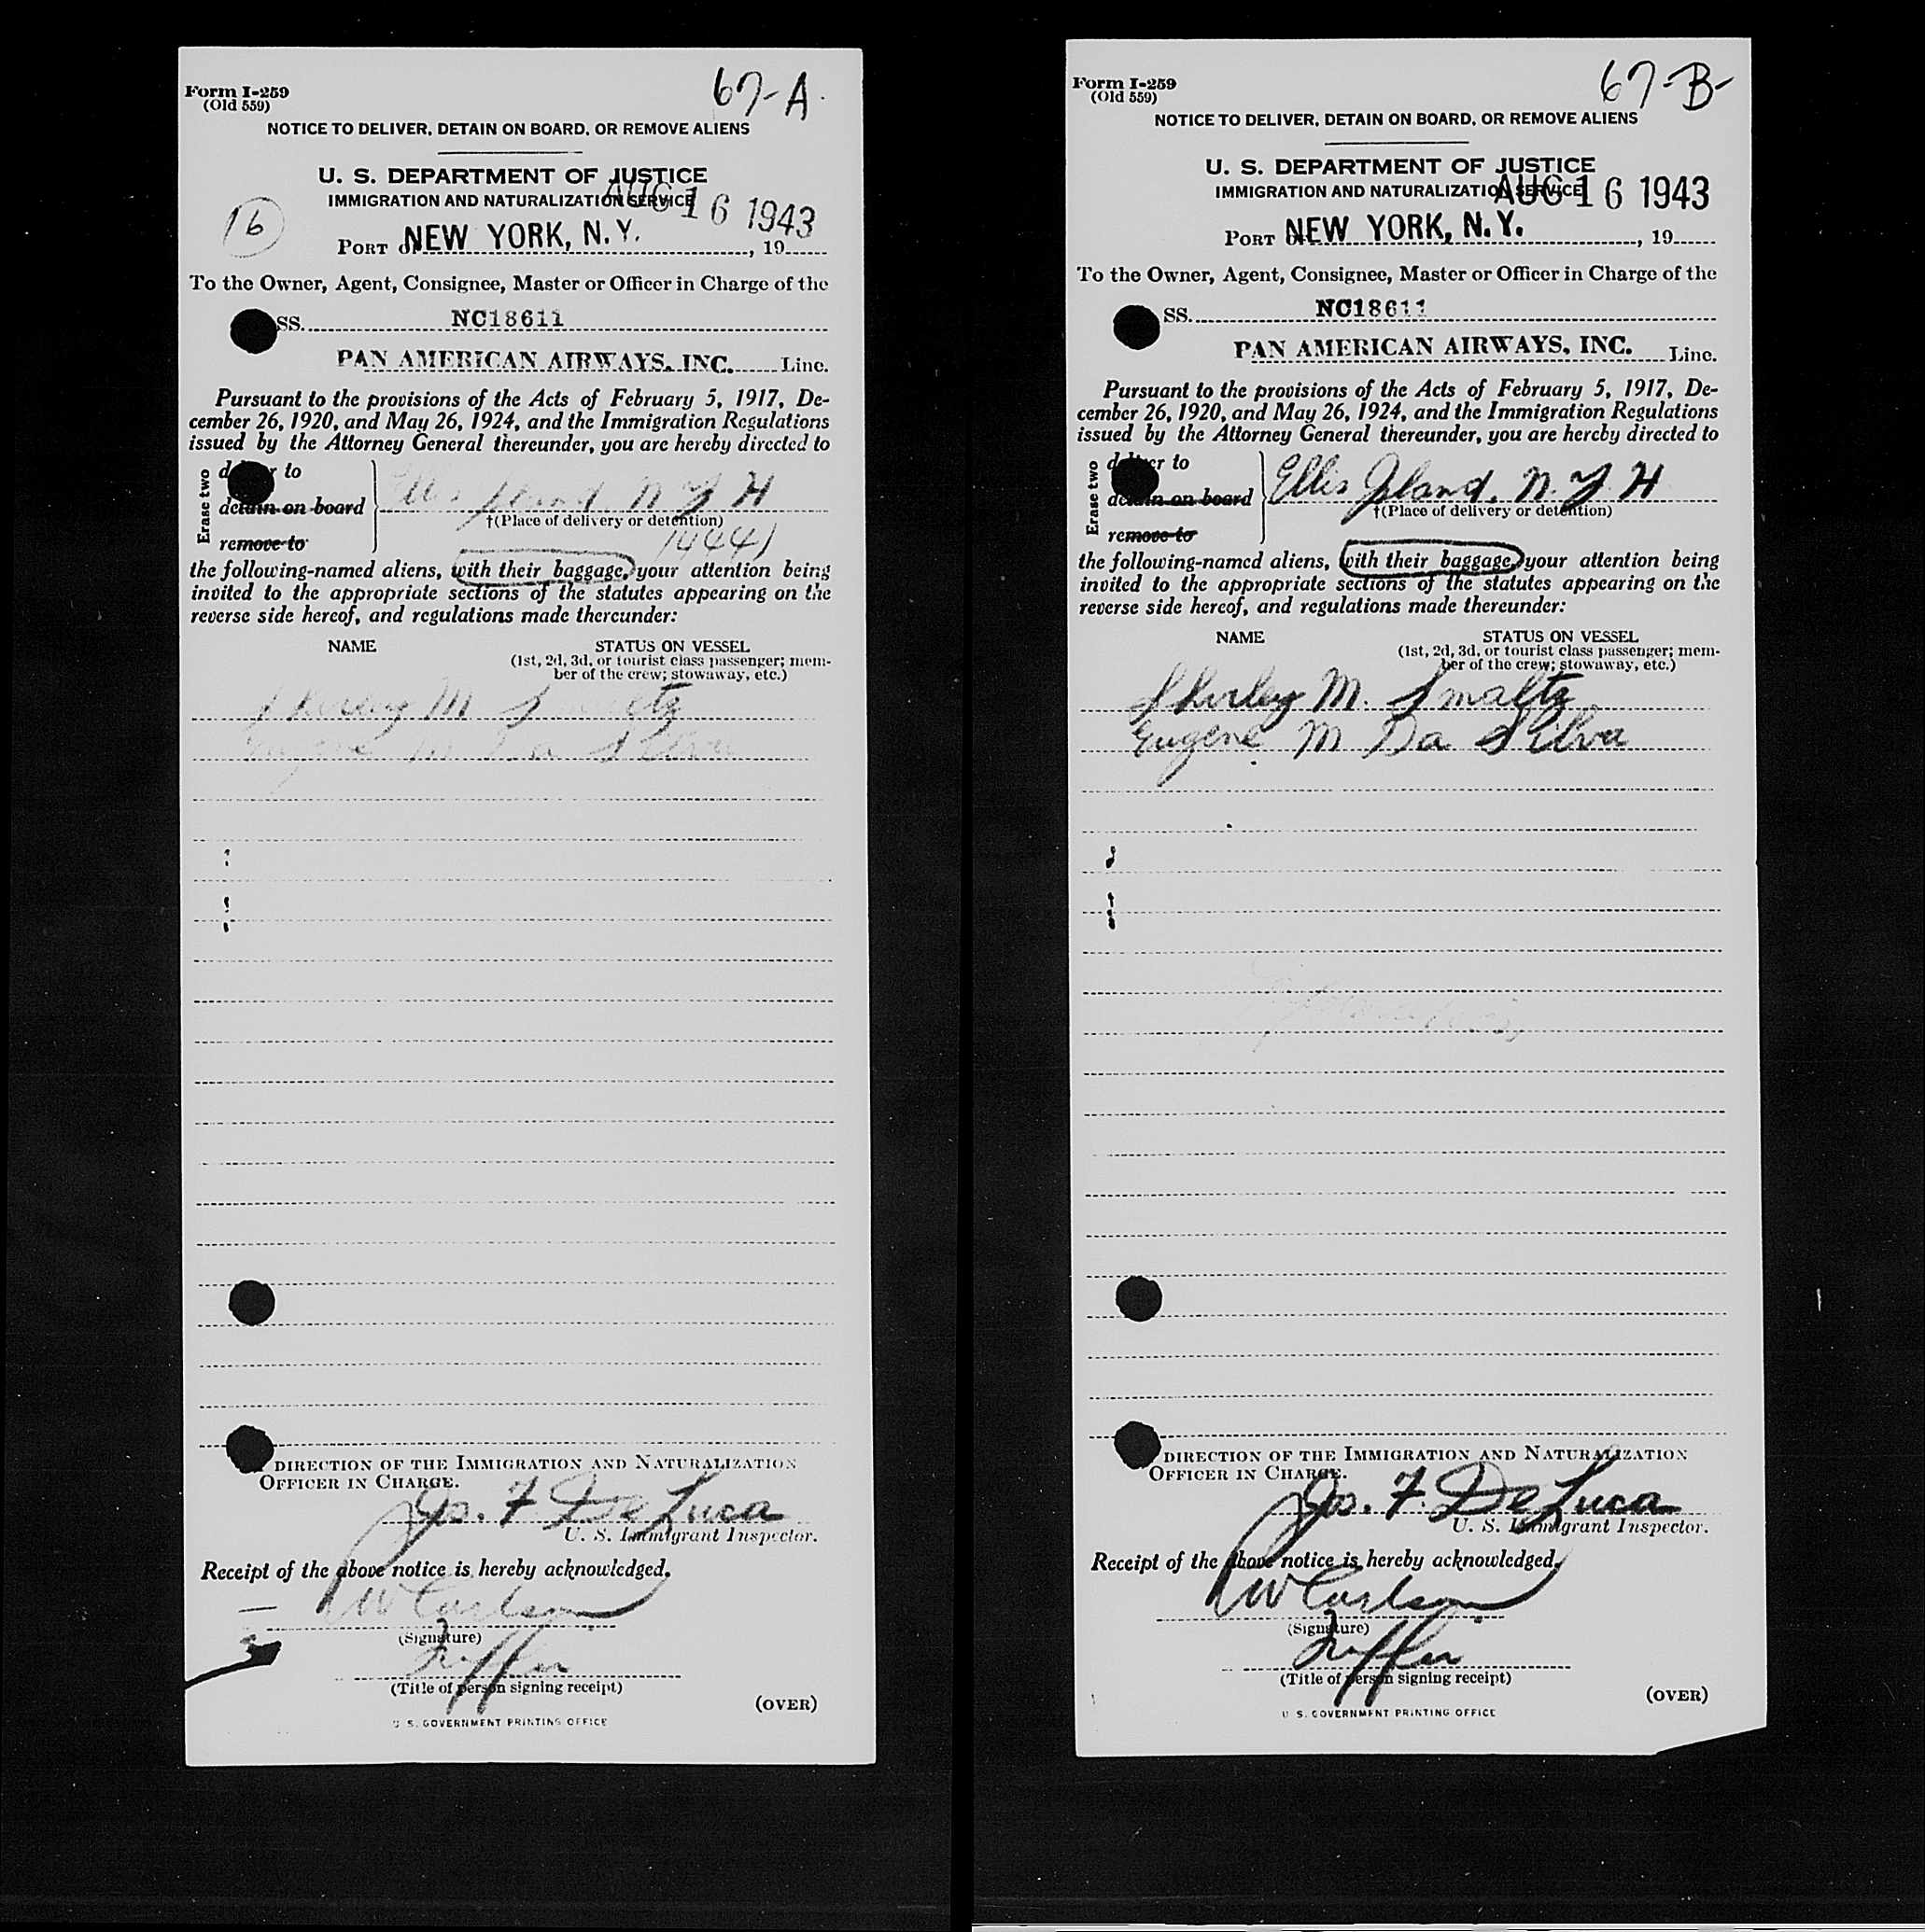 67-A.
Form I-259
(Old 559)
NOTICE TO DELIVER, DETAIN ON BOARD, OR REMOVE ALIENS
U. S. DEPARTMENT OF JUSTICE
IMMIGRATION AND NATURALIZATION SERVICE
AUG 16 1943
16
PORT OF NEW YORK, N.Y. , 19
To the Owner, Agent, Consignee, Master or Officer in Charge of the
SS. NC18611
PAN AMERICAN AIRWAYS, INC. Line.
Pursuant to the provisions of the Acts of February 5, 1917, De-
cember 26, 1920, and May 26, 1924, and the Immigration Regulations
issued by the Attorney General thereunder, you are hereby directed to
Erase two
to
detain on board
remove to
Ellis Island, N Y H
†(Place of delivery or detention)
the following-named aliens, with their baggage, your attention being
invited to the appropriate sections of the statutes appearing on the
reverse side hereof, and regulations made thereunder:
NAME STATUS ON VESSEL
(1st, 2d, 3d, or tourist class passenger; mem-
ber of the crew; stowaway, etc.)
Shirley M Smaltz
Eugene M Da Silva
DIRECTION OF THE IMMIGRATION AND NATURALIZATION
OFFICER IN CHARGE.
Jos. F. DeLuca
U. S. Immigrant Inspector.
Receipt of the above notice is hereby acknowledged.
W Carlson
(Signature)
(Title of person signing receipt)
(OVER)
U. S. GOVERNMENT PRINTING OFFICE
67-B-
Form I-259
(Old 559)
NOTICE TO DELIVER, DETAIN ON BOARD, OR REMOVE ALIENS
U. S. DEPARTMENT OF JUSTICE
IMMIGRATION AND NATURALIZATION SERVICE
AUG 16 1943
PORT OF NEW YORK, N.Y. , 19
To the Owner, Agent, Consignee, Master or Officer in Charge of the
SS. NC18611
PAN AMERICAN AIRWAYS, INC. Line.
Pursuant to the provisions of the Acts of February 5, 1917, De-
cember 26, 1920, and May 26, 1924, and the Immigration Regulations
issued by the Attorney General thereunder, you are hereby directed to
Erase two
deliver to
detain on board
remove to
Ellis Island, N.Y.H
†(Place of delivery or detention)
the following-named aliens, with their baggage, your attention being
invited to the appropriate sections of the statutes appearing on the
reverse side hereof, and regulations made thereunder:
NAME STATUS ON VESSEL
(1st, 2d, 3d, or tourist class passenger; mem-
ber of the crew; stowaway, etc.)
Shirley M. Smaltz
Eugene M Da Silva
DIRECTION OF THE IMMIGRATION AND NATURALIZATION
OFFICER IN CHARGE.
Jos. F. DeLuca
U. S. Immigrant Inspector.
Receipt of the above notice is hereby acknowledged.
W Carlson
(Signature)
(Title of person signing receipt)
(OVER)
U. S. GOVERNMENT PRINTING OFFICE